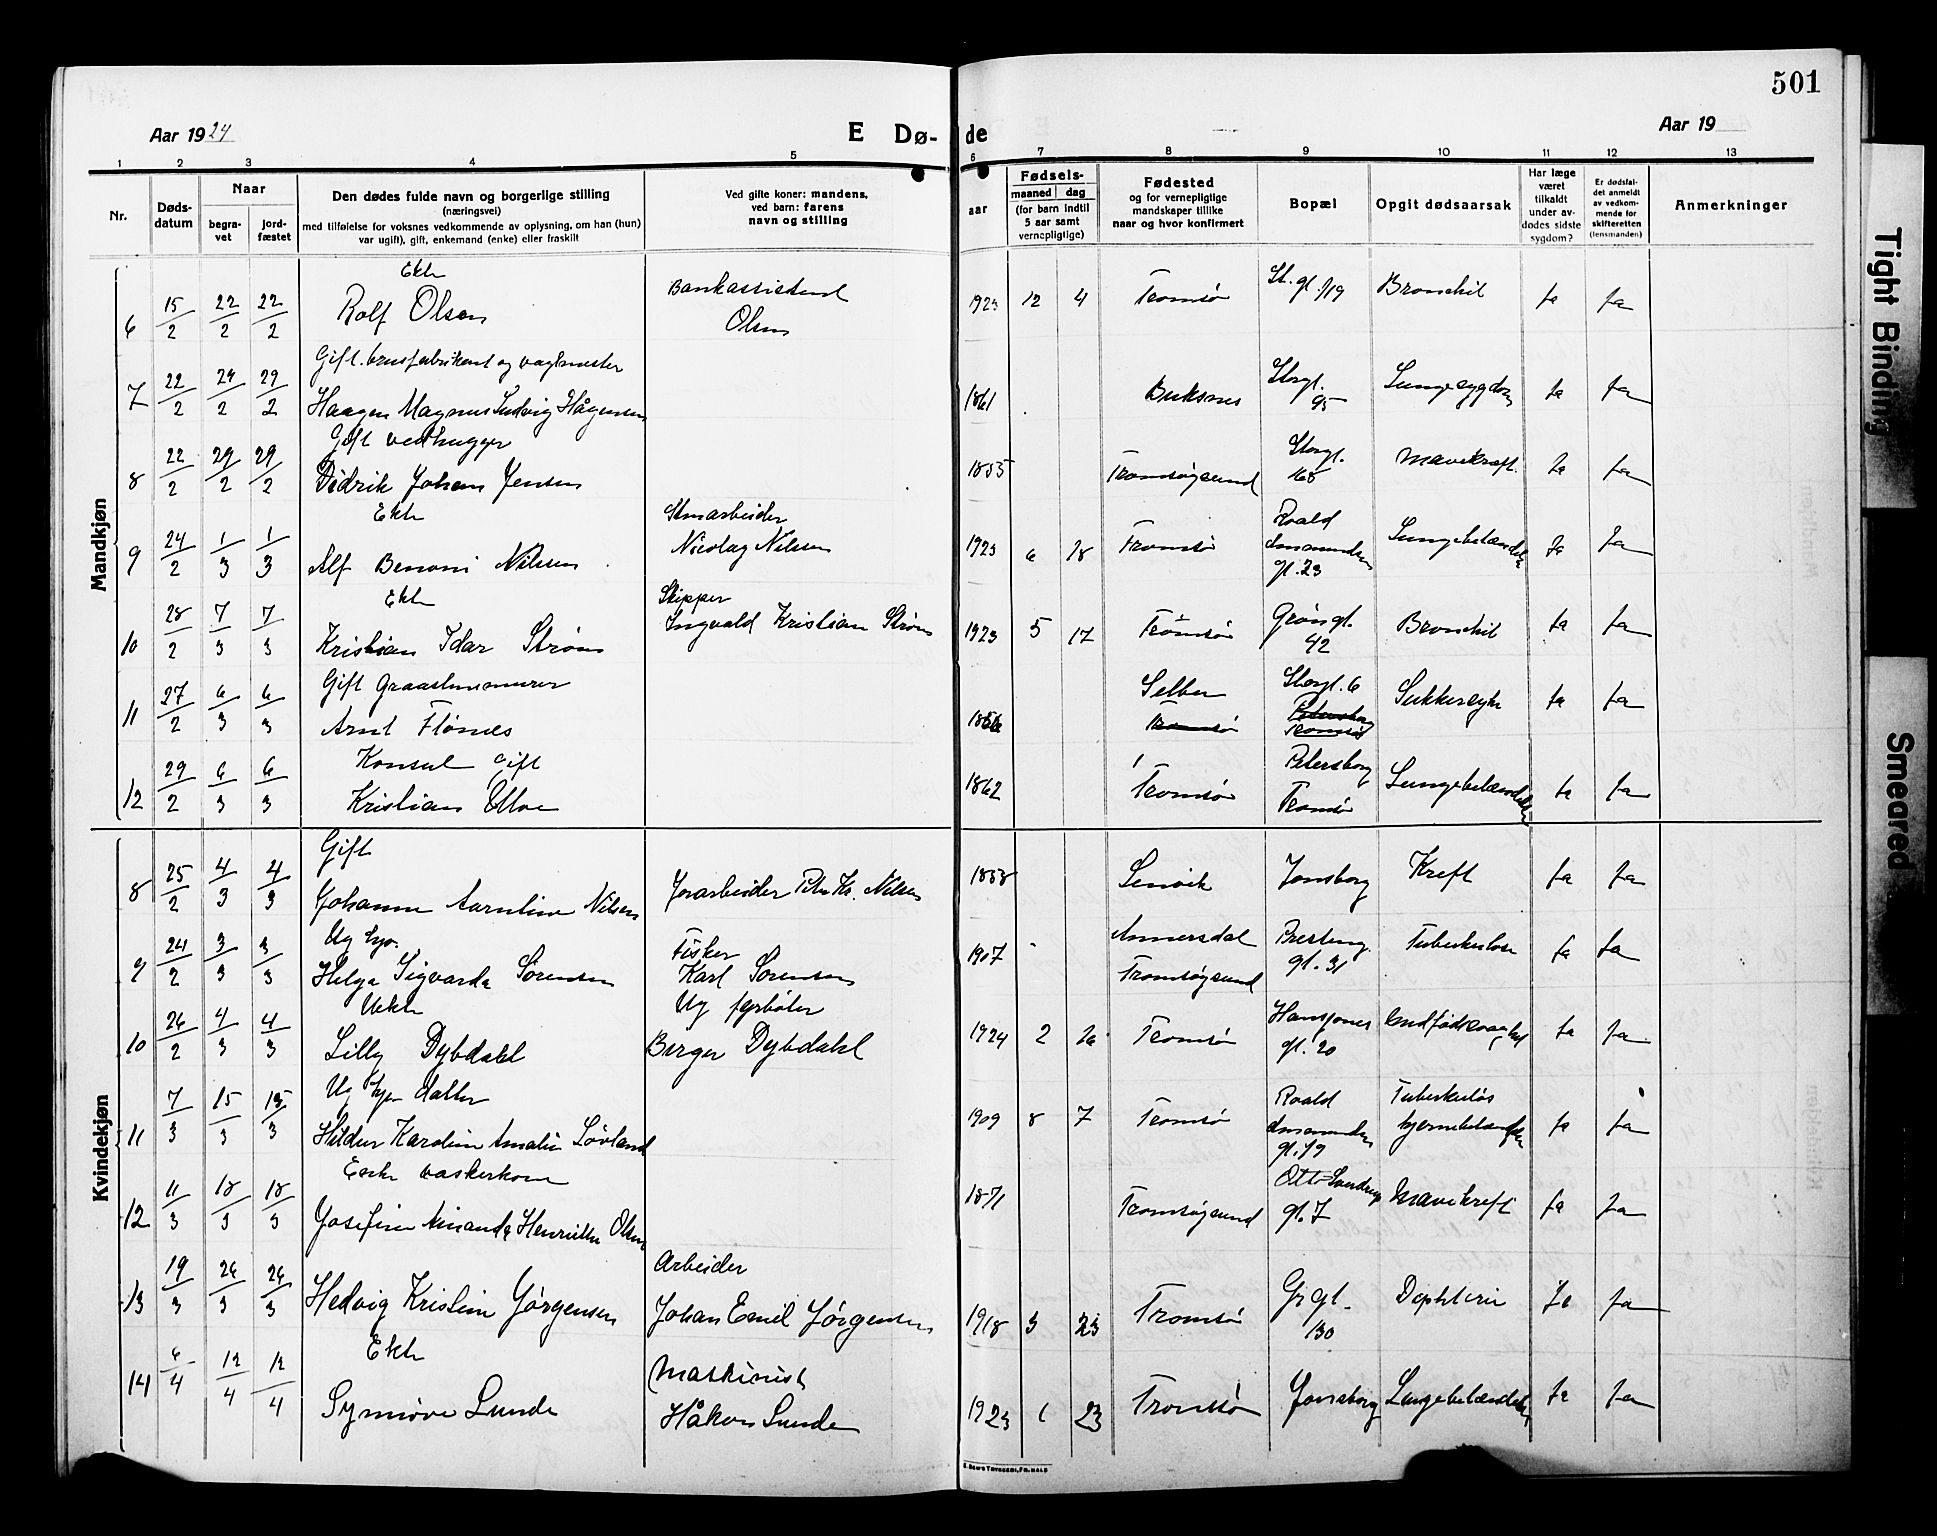 501
Aar 1924
E Dø-
de
Aar 19
1 2 3 4 5 6 7 8 9 10 11 12 13
Nr.
Døds-
datum
Naar
begra-
vet
jord-
fæstet
Den dødes fulde navn og borgerlige stilling
(næringsvei)
med tilføielse for voksnes vedkommende av oplysning, om han (hun)
var ugift), gift, enkemand (enke) eller fraskilt
Ved gifte koner: mandens,
ved barn: farens
navn og stilling
Fødsels-
aar
maaned dag
(for barn indtil
5 aar samt
vernepligtige)
Fødested
og for vernepligtige
mandskaper tillike
naar og hvor konfirmert
Bopæl
Opgit dødsaarsak
Har læge
været
tilkaldt
under av-
dødes sidste
sygdom?
Er dødsfal-
det anmeldt
av vedkom-
mende for
skifteretten
(lensmanden)
Anmerkninger
Mandkjøn
Ekte
6 15/2 22/2 22/2 Rolf Olsen Bankassistent Olsen 1923 12 4 Tromsø St. gt. 119 Bronchit Ja Ja
Gift. brusfabrikant og vagtmester
7 22/2 29/2 29/2 Haagen Magnus Ludvig Hågensen 1861 Buksnes Storgt. 95 Lungesygdom Ja Ja
Gift vedhugger
8 22/2 29/2 29/2 Didrik Johan Jensen 1855 Tromsøysund Storgt. 165 Mavekræft Ja Ja
Ekte
9 24/2 1/3 1/3 Alf Benoni Nilsen Nicolay Nilsen 1923 6 18 Tromsø Roald Amundsens gt. 23 Lungebetændelse Ja Ja
Ekte
10 28/2 7/3 7/3 Kristian Idar Strøm Skipper Ingvald Kristian Strøm 1923 5 17 Tromsø Grøngt. 42 Bronchit Ja Ja
Gift Graastensmurer
11 27/2 6/3 6/3 Arnt Flønes Selbu Tromsø Storgt. 6 Petersborg Tromsø Sukkersyke Ja Ja
Konsul Gift
12 29/2 6/3 6/3 Kristian Ebbe 1862 Tromsø Petersborg Tromsø Lungebetændelse Ja Ja
Kvindekjøn
Gift
8 25/2 4/3 4/3 Johanne Nilsen Jorarbeider Peter Kr. Nilsen 1858 Lenvik Jonsborg Kreft Ja Ja
Ug
9 24/2 3/3 3/3 Helga Sigvarda Sørensen Fisker Karl Sørensen 1907 Tromsøysund gt. 31 Tuberkulose Ja Ja
Uekte
10 26/2 4/3 4/3 Lilly Dybdahl Ug fyrbøter Birger Dybdahl 1924 2 Tromsø Hansjones gt. 20 Medfødt svaghet Ja Ja
Ug hjv. datter
11 7/3 15/3 15/3 Hildur Karoline Amalie Løvland 1909 8 7 Tromsø Roald Amundsens gt. 19 Tuberkuløs hjernebetændelse Ja Ja
Enke vaskerkone
12 11/3 18/3 18/3 Josefine Amanda Henriette Olsen 1871 Tromsøysund Otto Sverdrups gt. 7 Mavekreft Ja Ja
13 19/3 26/3 26/3 Hedvig Kristine Jørgensen Arbeider Johan Emil Jørgensen 1918 3 23 Tromsø Grgt. 130 Diphterie Ja Ja
Ekte
14 6/4 12/4 12/4 Synnøve Lunde Maskinist Håkon Lunde 1923 1 23 Tromsø Jonsborg Lungebetændelse Ja Ja
E. Sem's Trykkeri, Fr.hald
Tight Binding
Smeared